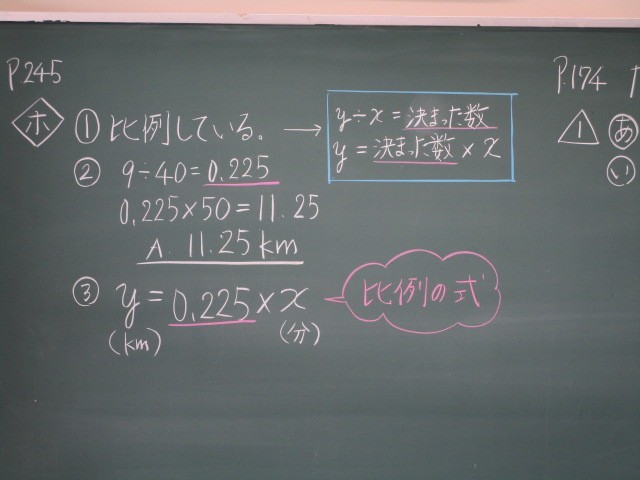 P.245
ホ ① 比例している。 →
y÷x=決まった数
y=決まった数×x
② 9÷40=0.225
0.225×50=11.25
A. 11.25km
③ y=0.225×x
(km) (分)
比例の式
P.174
1 あ
い